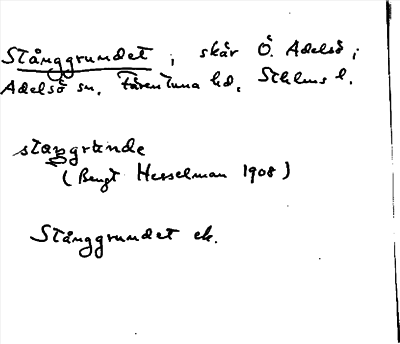 Stånggrundet, skär Ö. Adelsö i
Adelsö sn, Färentuna hd, Sthlms l.
stangründe
(Bengt Hesselman 1908)
Stånggrundet ek.